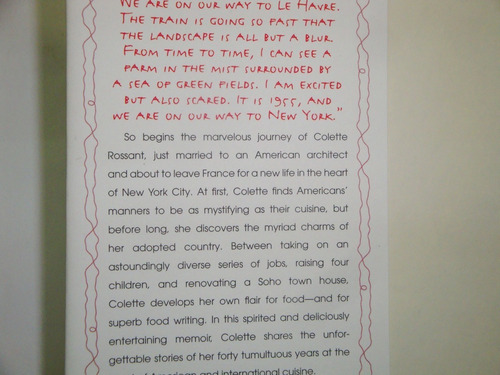 WE ARE ON OUR WAY TO LE HAVRE.
THE TRAIN IS GOING SO FAST THAT
THE LANDSCAPE IS ALL BUT A BLUR.
FROM TIME TO TIME, I CAN SEE A
FARM IN THE MIST SURROUNDED BY
A SEA OF GREEN FIELDS. I AM EXCITED
BUT ALSO SCARED. IT IS 1955, AND
WE ARE ON OUR WAY TO NEW YORK."
So begins the marvelous journey of Colette
Rossant, just married to an American architect
and about to leave France for a new life in the heart
of New York City. At first, Colette finds Americans'
manners to be as mystifying as their cuisine, but
before long, she discovers the myriad charms of
her adopted country. Between taking on an
astoundingly diverse series of jobs, raising four
children, and renovating a Soho town house,
Colette develops her own flair for food—and for
superb food writing. In this spirited and deliciously
entertaining memoir, Colette shares the unfor-
gettable stories of her forty tumultuous years at the
American and international cuisine.